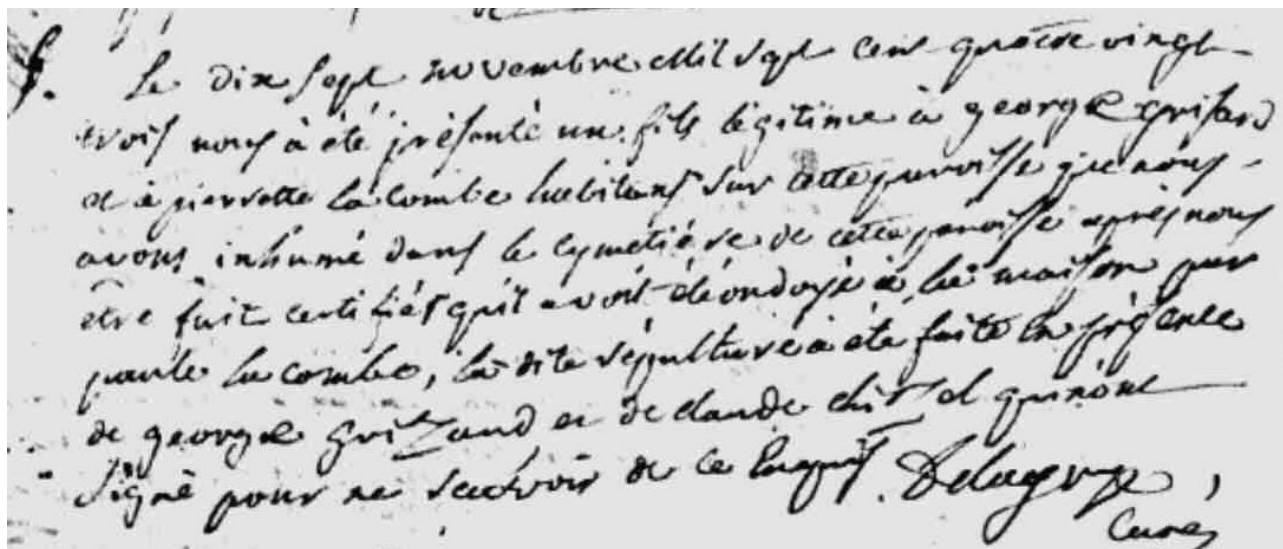 S. Le dix sept novembre Mil sept cent quatre vingt
trois nous à été présenté un fils légitime à george grisard
et à pierrette la combe habitans sur cette paroisse que nous
avons inhumé dans le cymetière de cette paroisse après nous
etre fait certifier qu'il avoit été ondoyé à la maison par
paule la combe, la dite sépulture à été faite en présence
de george Grizard et de claude qui n'ont
signé pour ne scavoir de ce Enquis. Delagrye,
Curé